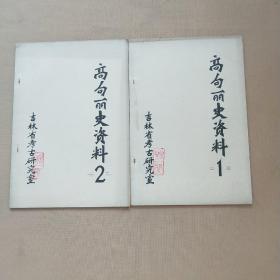 高句丽史资料
2
吉林省考古研究室
高句丽史资料
1
吉林省考古研究室